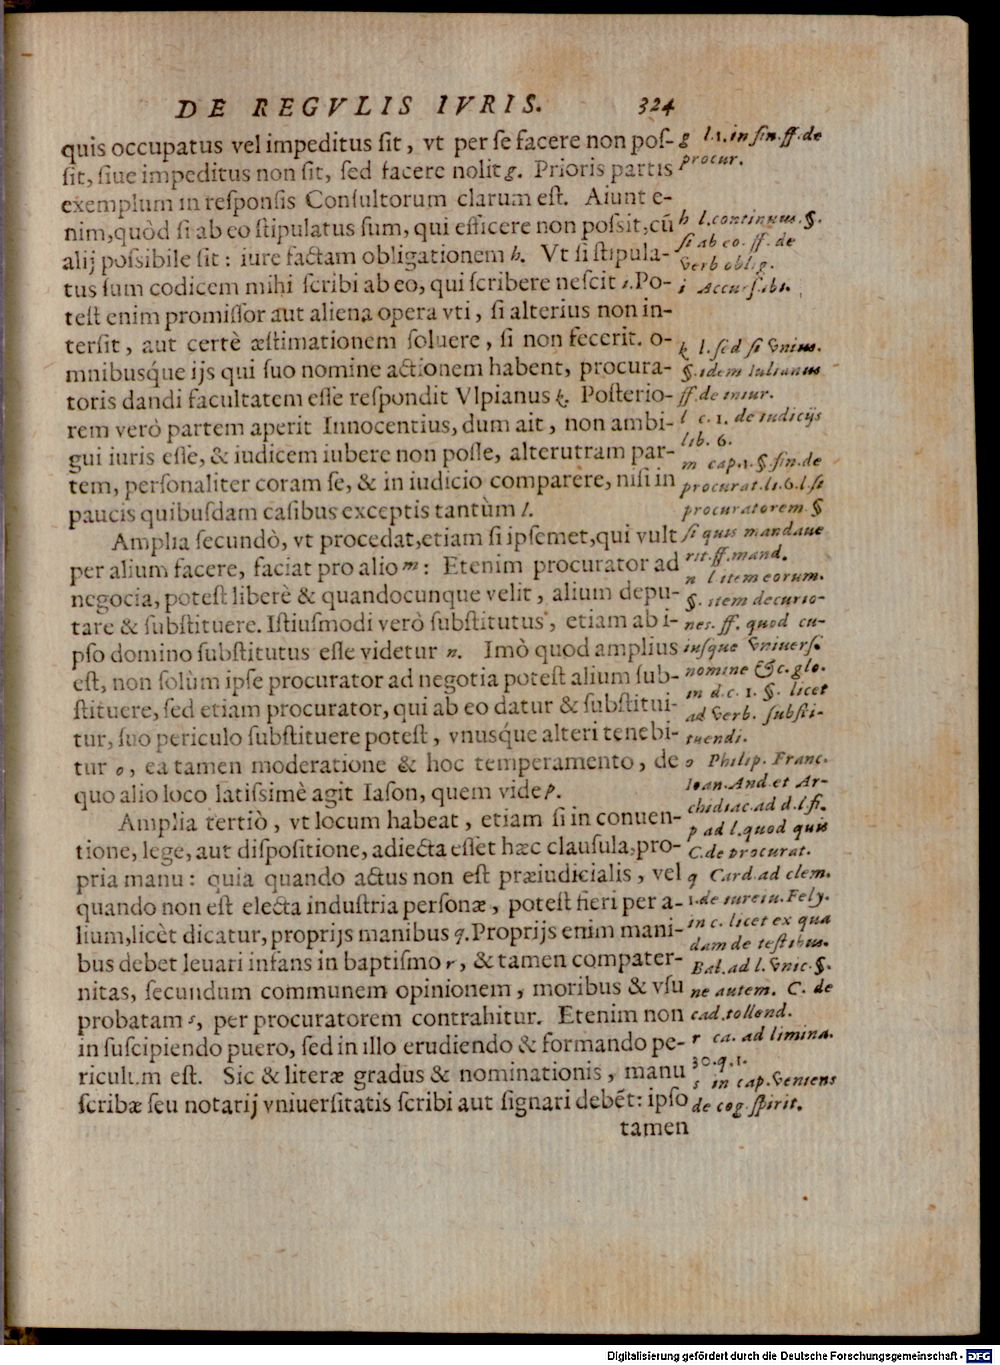 DE REGVLIS IVRIS. 324
quis occupatus vel impeditus ſit, vt per ſe facere non poſ-
ſit, ſiue impeditus non ſit, ſed facere nolit g. Prioris partis
exemplum in reſponſis Conſultorum clarum eſt. Aiunt e-
nim, quòd ſi ab eo ſtipulatus ſum, qui efficere non poſsit, cũ
alij poſsibile ſit: iure factam obligationem h. Vt ſi ſtipula-
tus ſum codicem mihi ſcribi ab eo, qui ſcribere neſcit i. Po-
teſt enim promiſſor aut aliena opera vti, ſi alterius non in-
terſit, aut certè æſtimationem ſoluere, ſi non fecerit. o-
mnibusq́ue ijs qui ſuo nomine actionem habent, procura-
toris dandi facultatem eſſe reſpondit Vlpianus k. Poſterio-
rem verò partem aperit Innocentius, dum ait, non ambi-
gui iuris eſſe, & iudicem iubere non poſſe, alterutram par-
tem, perſonaliter coram ſe, & in iudicio comparere, niſi in
paucis quibuſdam caſibus exceptis tantùm l.
Amplia ſecundò, vt procedat, etiam ſi ipſemet, qui vult
per alium facere, faciat pro alio m: Etenim procurator ad
negocia, poteſt liberè & quandocunque velit, alium depu-
tare & ſubſtituere. Iſtiuſmodi verò ſubſtitutus, etiam ab i-
pſo domino ſubſtitutus eſſe videtur n. Imò quod amplius
eſt, non ſolùm ipſe procurator ad negotia poteſt alium ſub-
ſtituere, ſed etiam procurator, qui ab eo datur & ſubſtitui-
tur, ſuo periculo ſubſtituere poteſt, vnuſq́ue alteri tenebi-
tur o, ea tamen moderatione & hoc temperamento, de
quo alio loco latiſsimè agit Iaſon, quem vide p.
Amplia tertiò, vt locum habeat, etiam ſi in conuen-
tione, lege, aut diſpoſitione, adiecta eſſet hæc clauſula, pro-
pria manu: quia quando actus non eſt præiudicialis, vel
quando non eſt electa induſtria perſonæ, poteſt fieri per a-
lium, licèt dicatur, proprijs manibus q. Proprijs enim mani-
bus debet leuari infans in baptiſmo r, & tamen compater-
nitas, ſecundum communem opinionem, moribus & vſu
probatam s, per procuratorem contrahitur. Etenim non
in ſuſcipiendo puero, ſed in illo erudiendo & formando pe-
riculum eſt. Sic & literæ gradus & nominationis, manu
ſcribæ ſeu notarij vniuerſitatis ſcribi aut ſignari debẽt: ipſo
tamen
g l.1. in fin. ff. de
procur.
h l. continuus. §.
ſi ab eo. ff. de
verb oblig.
i Accurſ. ibi.
k l. ſed ſi vnius.
§. idem Iulianus
ff. de iniur.
l c. 1. de iudicijs
lib. 6.
m cap. 1. §. fin. de
procurat. li. 6. l. ſi
procuratorem §
ſi quis mandaue
rit. ff. mand.
n l item eorum.
§. item decurio-
nes. ff. quod cu-
iuſque vniuerſi
nomine &c. glo.
in d. c. 1. §. licet
ad verb. ſubſti-
tuendi.
o Philip. Franc.
Ioan. And. et Ar-
chidiac. ad d. l. ſi.
p ad l. quod quis
C. de procurat.
q Card. ad clem.
1. de iureiu. Fely.
in c. licet ex qua
dam de teſtibus.
Bal. ad l. vnic. §.
ne autem. C. de
cad. tollend.
r ca. ad limina.
30. q. 1.
s in cap. veniens
de cog. ſpirit.
Digitalisierung gefördert durch die Deutsche Forschungsgemeinschaft - DFG